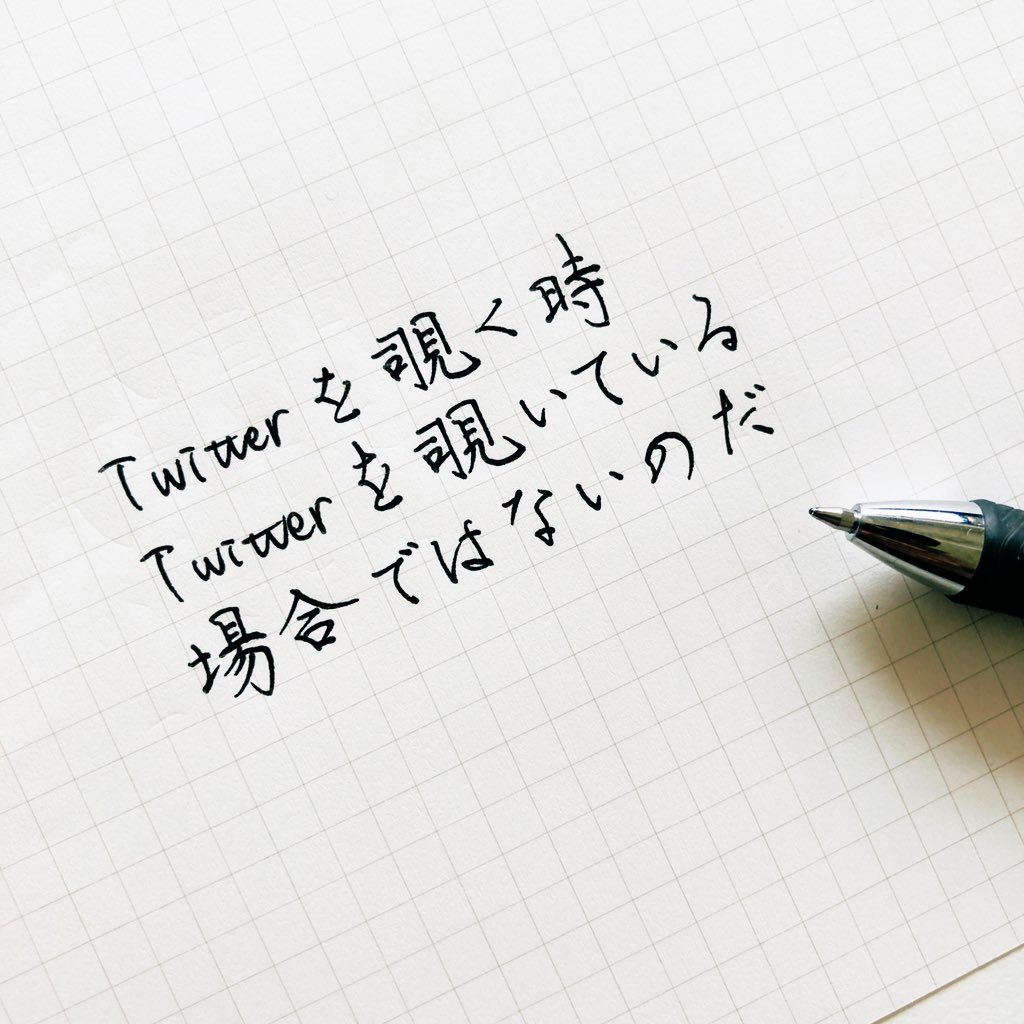 Twitterを覗く時
Twitterを覗いている
場合ではないのだ